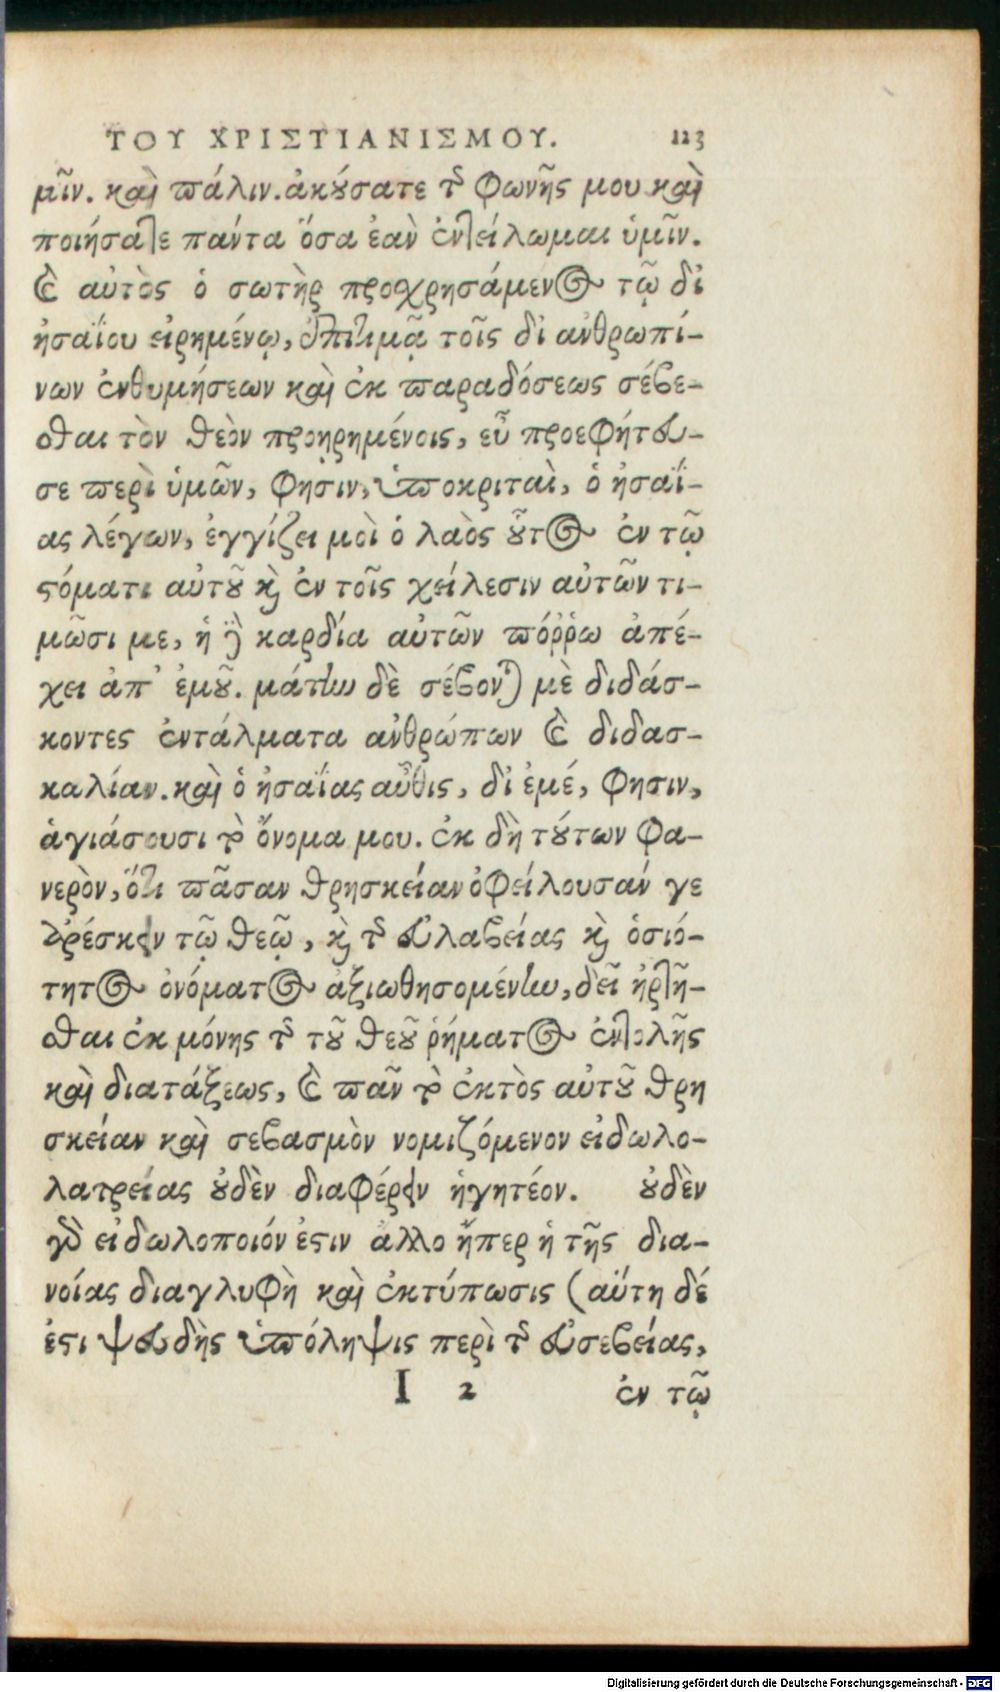 ΤΟΥ ΧΡΙΣΤΙΑΝΙΣΜΟΥ. 123
μῖν. καὶ πάλιν. ἀκούσατε τῆς φωνῆς μου καὶ
ποιήσατε πάντα ὅσα ἐαν ἐντείλωμαι ὑμῖν.
καὶ αὐτὸς ὁ σωτὴρ προχρησάμενος τῷ δι
ἡσαΐου εἰρημένῳ, ἐπιτιμᾷ τοῖς δι ἀνθρωπί-
νων ἐνθυμήσεων καὶ ἐκ παραδόσεως σέβε-
σθαι τὸν θεὸν προῃρημένοις, εὖ προεφήτευ-
σε περὶ ὑμῶν, φησιν, ὑποκριταὶ, ὁ ἡσαΐ-
ας λέγων, ἐγγίζει μοὶ ὁ λαὸς οὗτος ἐν τῷ
στόματι αὐτοῦ καὶ ἐν τοῖς χείλεσιν αὐτῶν τι-
μῶσι με, ἡ δὲ καρδία αὐτῶν πόῤῥω ἀπέ-
χει ἀπ᾿ ἐμοῦ. μάτην δὲ σέβονταί μὲ διδάσ-
κοντες ἐντάλματα ἀνθρώπων καὶ διδασ-
καλίαν. καὶ ὁ ἡσαΐας αὖθις, δι ἐμέ, φησιν,
ἁγιάσουσι τὸ ὄνομα μου. ἐκ δὴ τούτων φα-
νερὸν, ὅτι πᾶσαν θρησκείαν ὀφείλουσάν γε
ἀρέσκειν τῷ θεῷ, καὶ τῆς εὐλαβείας καὶ ὁσιό-
τητος ὀνόματος ἀξιωθησομένην, δεῖ ἠρτῆ-
σθαι ἐκ μόνης τῆς τοῦ θεοῦ ῥήματος ἐντολῆς
καὶ διατάξεως, καὶ πᾶν τὸ ἐκτὸς αὐτοῦ θρη
σκείαν καὶ σεβασμὸν νομιζόμενον εἰδωλο-
λατρείας οὐδὲν διαφέρειν ἡγητέον. οὐδὲν
γὰρ εἰδωλοποιόν ἐστιν ἄλλο ἤπερ ἡ τῆς δια-
νοίας διαγλυφὴ καὶ ἐκτύπωσις (αὕτη δέ
ἐστι ψευδὴς ὑπόληψις περὶ τῆς εὐσεβείας,
I 2 ἐν τῷ
Digitalisierung gefördert durch die Deutsche Forschungsgemeinschaft - DFG